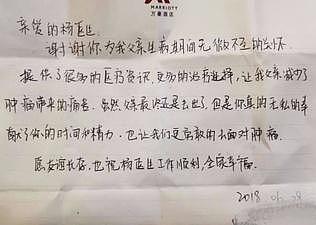 MARRIOTT
万豪酒店
亲爱的杨医生
谢谢你为我父亲生病期间无微不至的关怀
提供了很多的医药资讯,更多的治疗选择,让我父亲减少了
肿瘤带来的痛苦。虽然父亲最终还是去世了,但是你真的无私的奉
献了你的时间和精力,也让我们更勇敢的去面对肿瘤.
愿友谊长存,也祝杨医生工作顺利,全家幸福.
2018.06.29